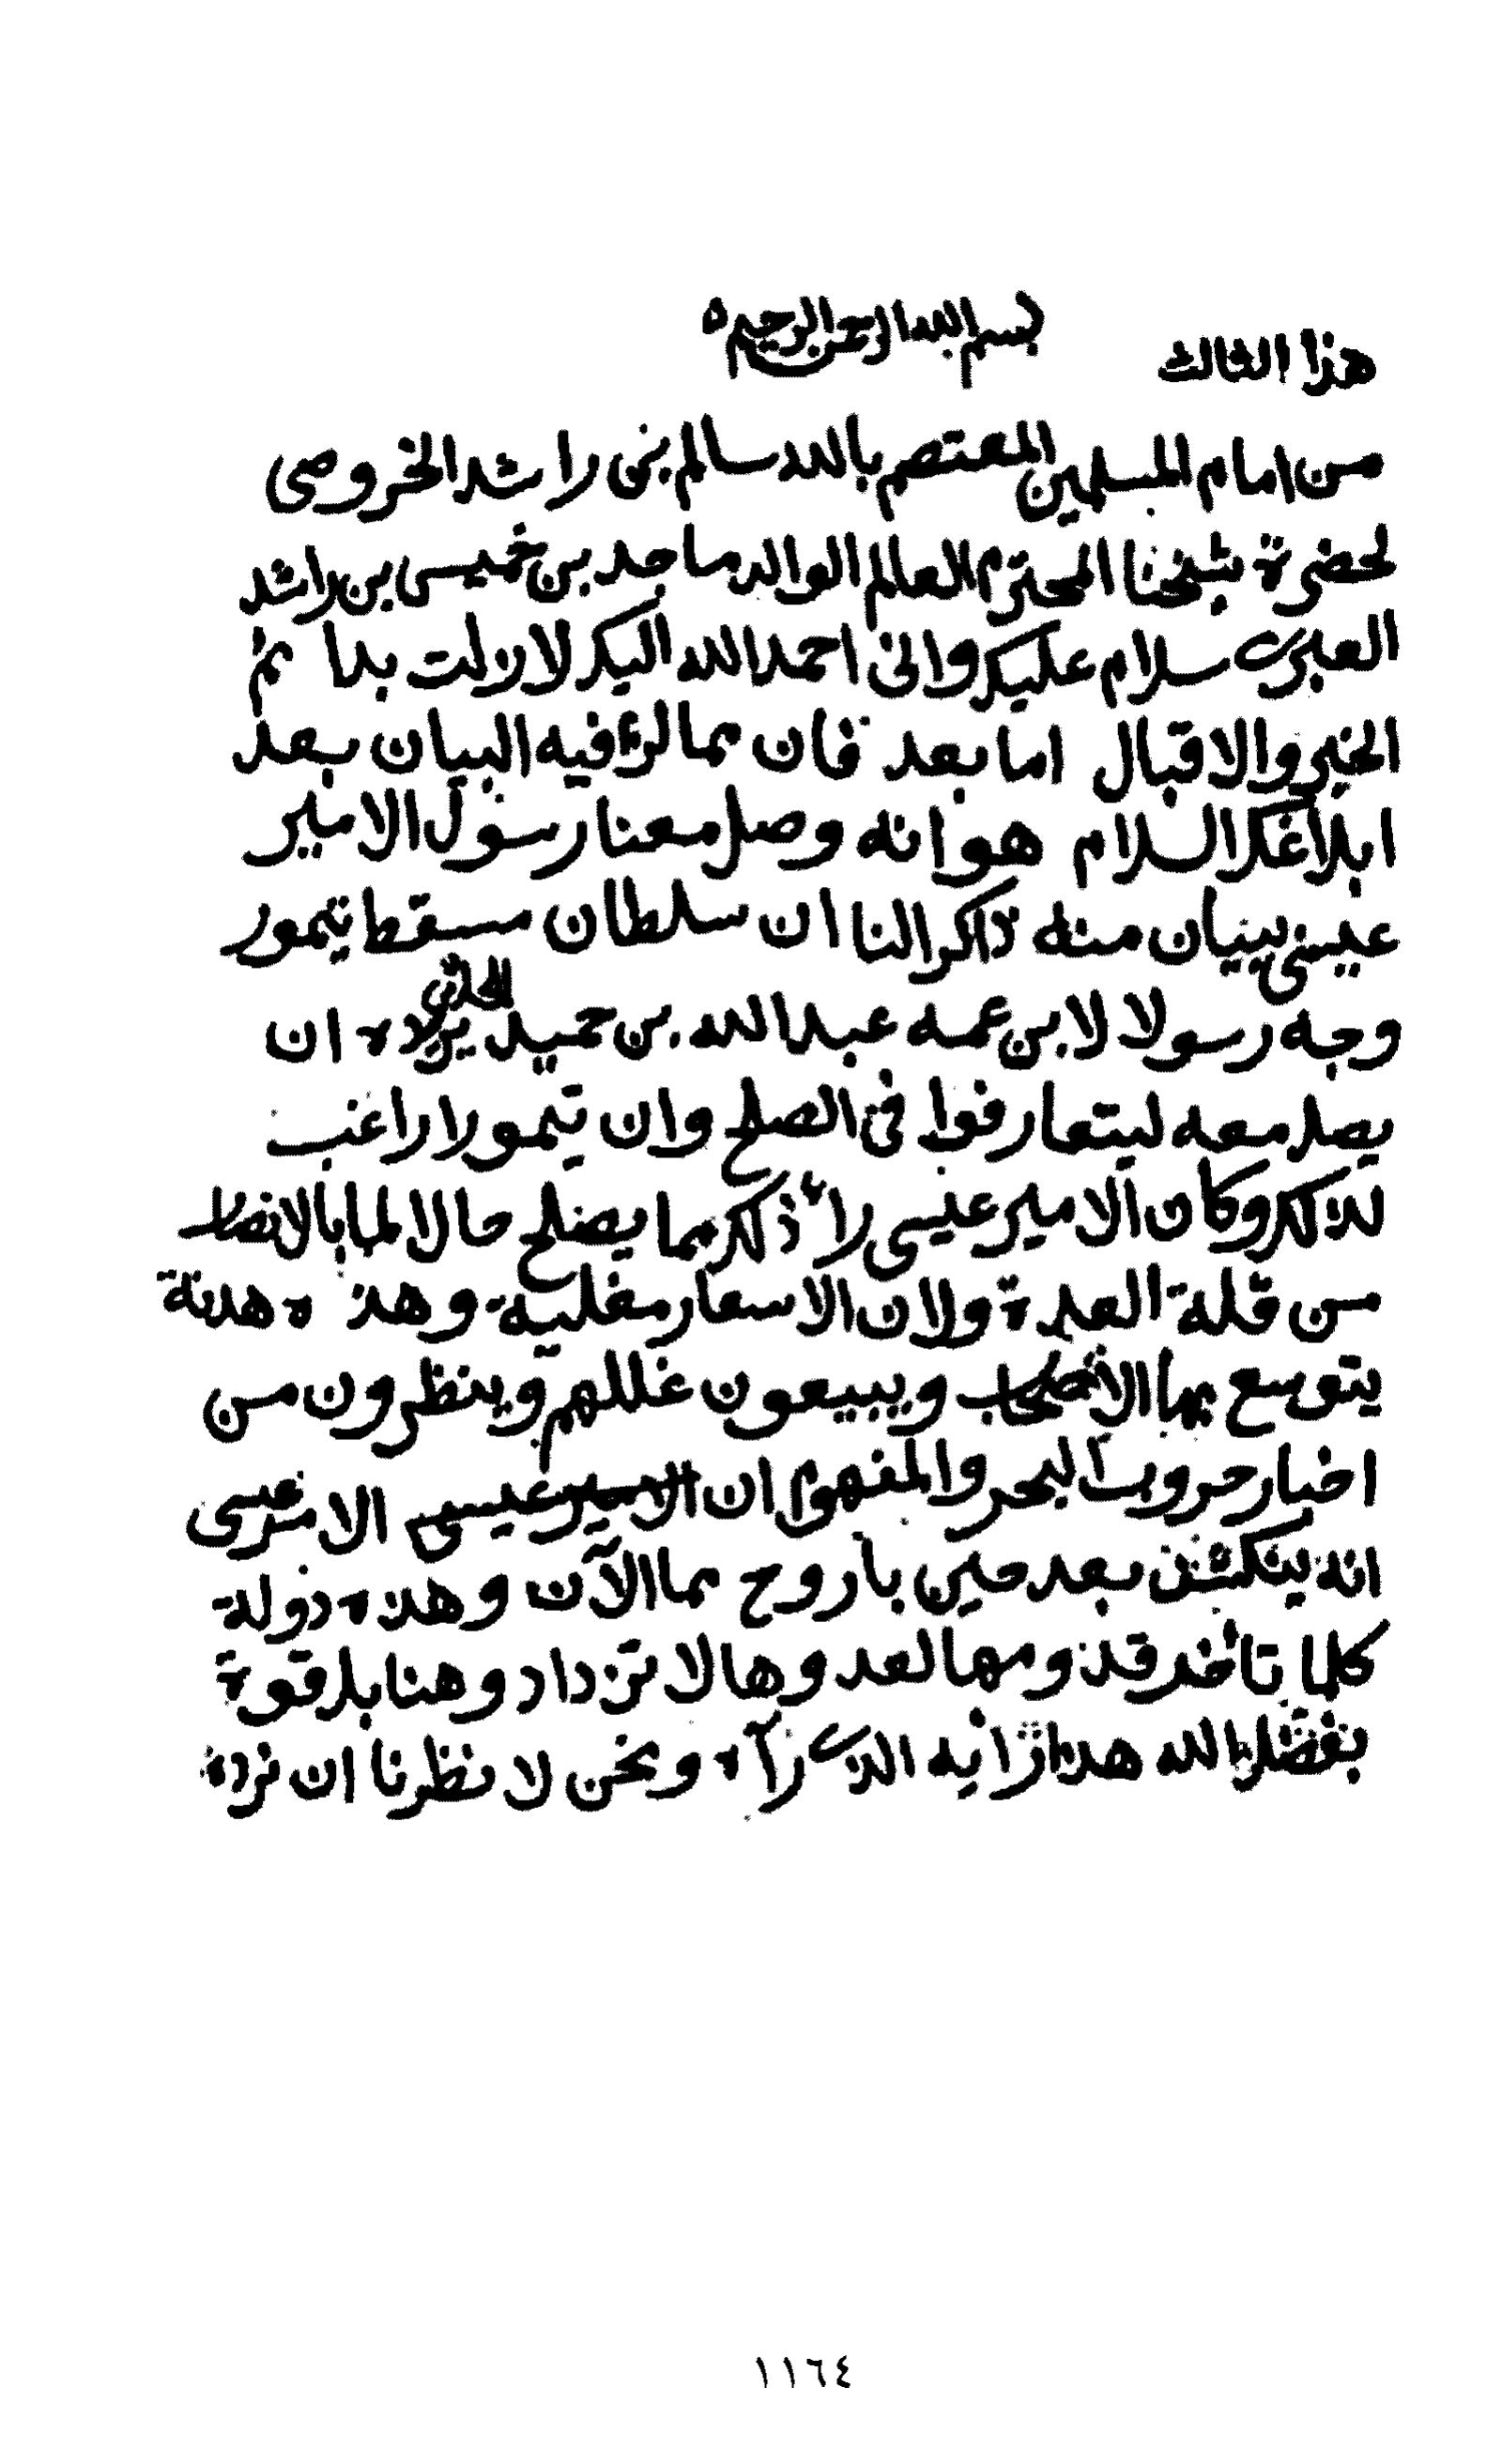 هذا الثالث
بسم الله الرحمن الرحيم
من امام المسلمين المعتصم بالله سالم بن راشد الخروصي
لحضرة شيخنا المحترم العالم الوالد ماجد بن خميس بن راشد
العبري سلام عليك واني احمد الله اليك لا زلت بدائم
الخير والاقبال اما بعد فان مما لزم فيه البيان بعد
ابلاغك السلام هو انه وصل معنا رسول الامير
عيسى ببيان منه ذاكرا لنا ان سلطان مسقط تيمور
وجه رسولا لابن عمه عبدالله بن حميد يريده ان
يصل معه ليتعارفوا في الصلح وان تيمورا راغب
لذلك وكان الامير عيسى راء ذلك مما يصلح حالا لما بالانصار
من قلة العدة ولان الاسعار مغلية وهذه هدنة
يتوسع بها ويبيعون غللهم وينظرون من
اخبار حروب البحر والمفهوم ان الامير عيسى الامر عسى
انه ينكشف بعد حين بأروح مما الآن وهذه دولة
كلما تأخر قدومها لعدوها لا تزداد وهنا بل قوة
بفضل الله هذا رأيه الذي رآه ونحن لا نظرنا ان نرده
١١٦٤